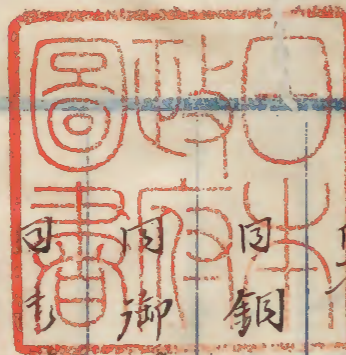 日本
政府
圖書
同銅
同御
同